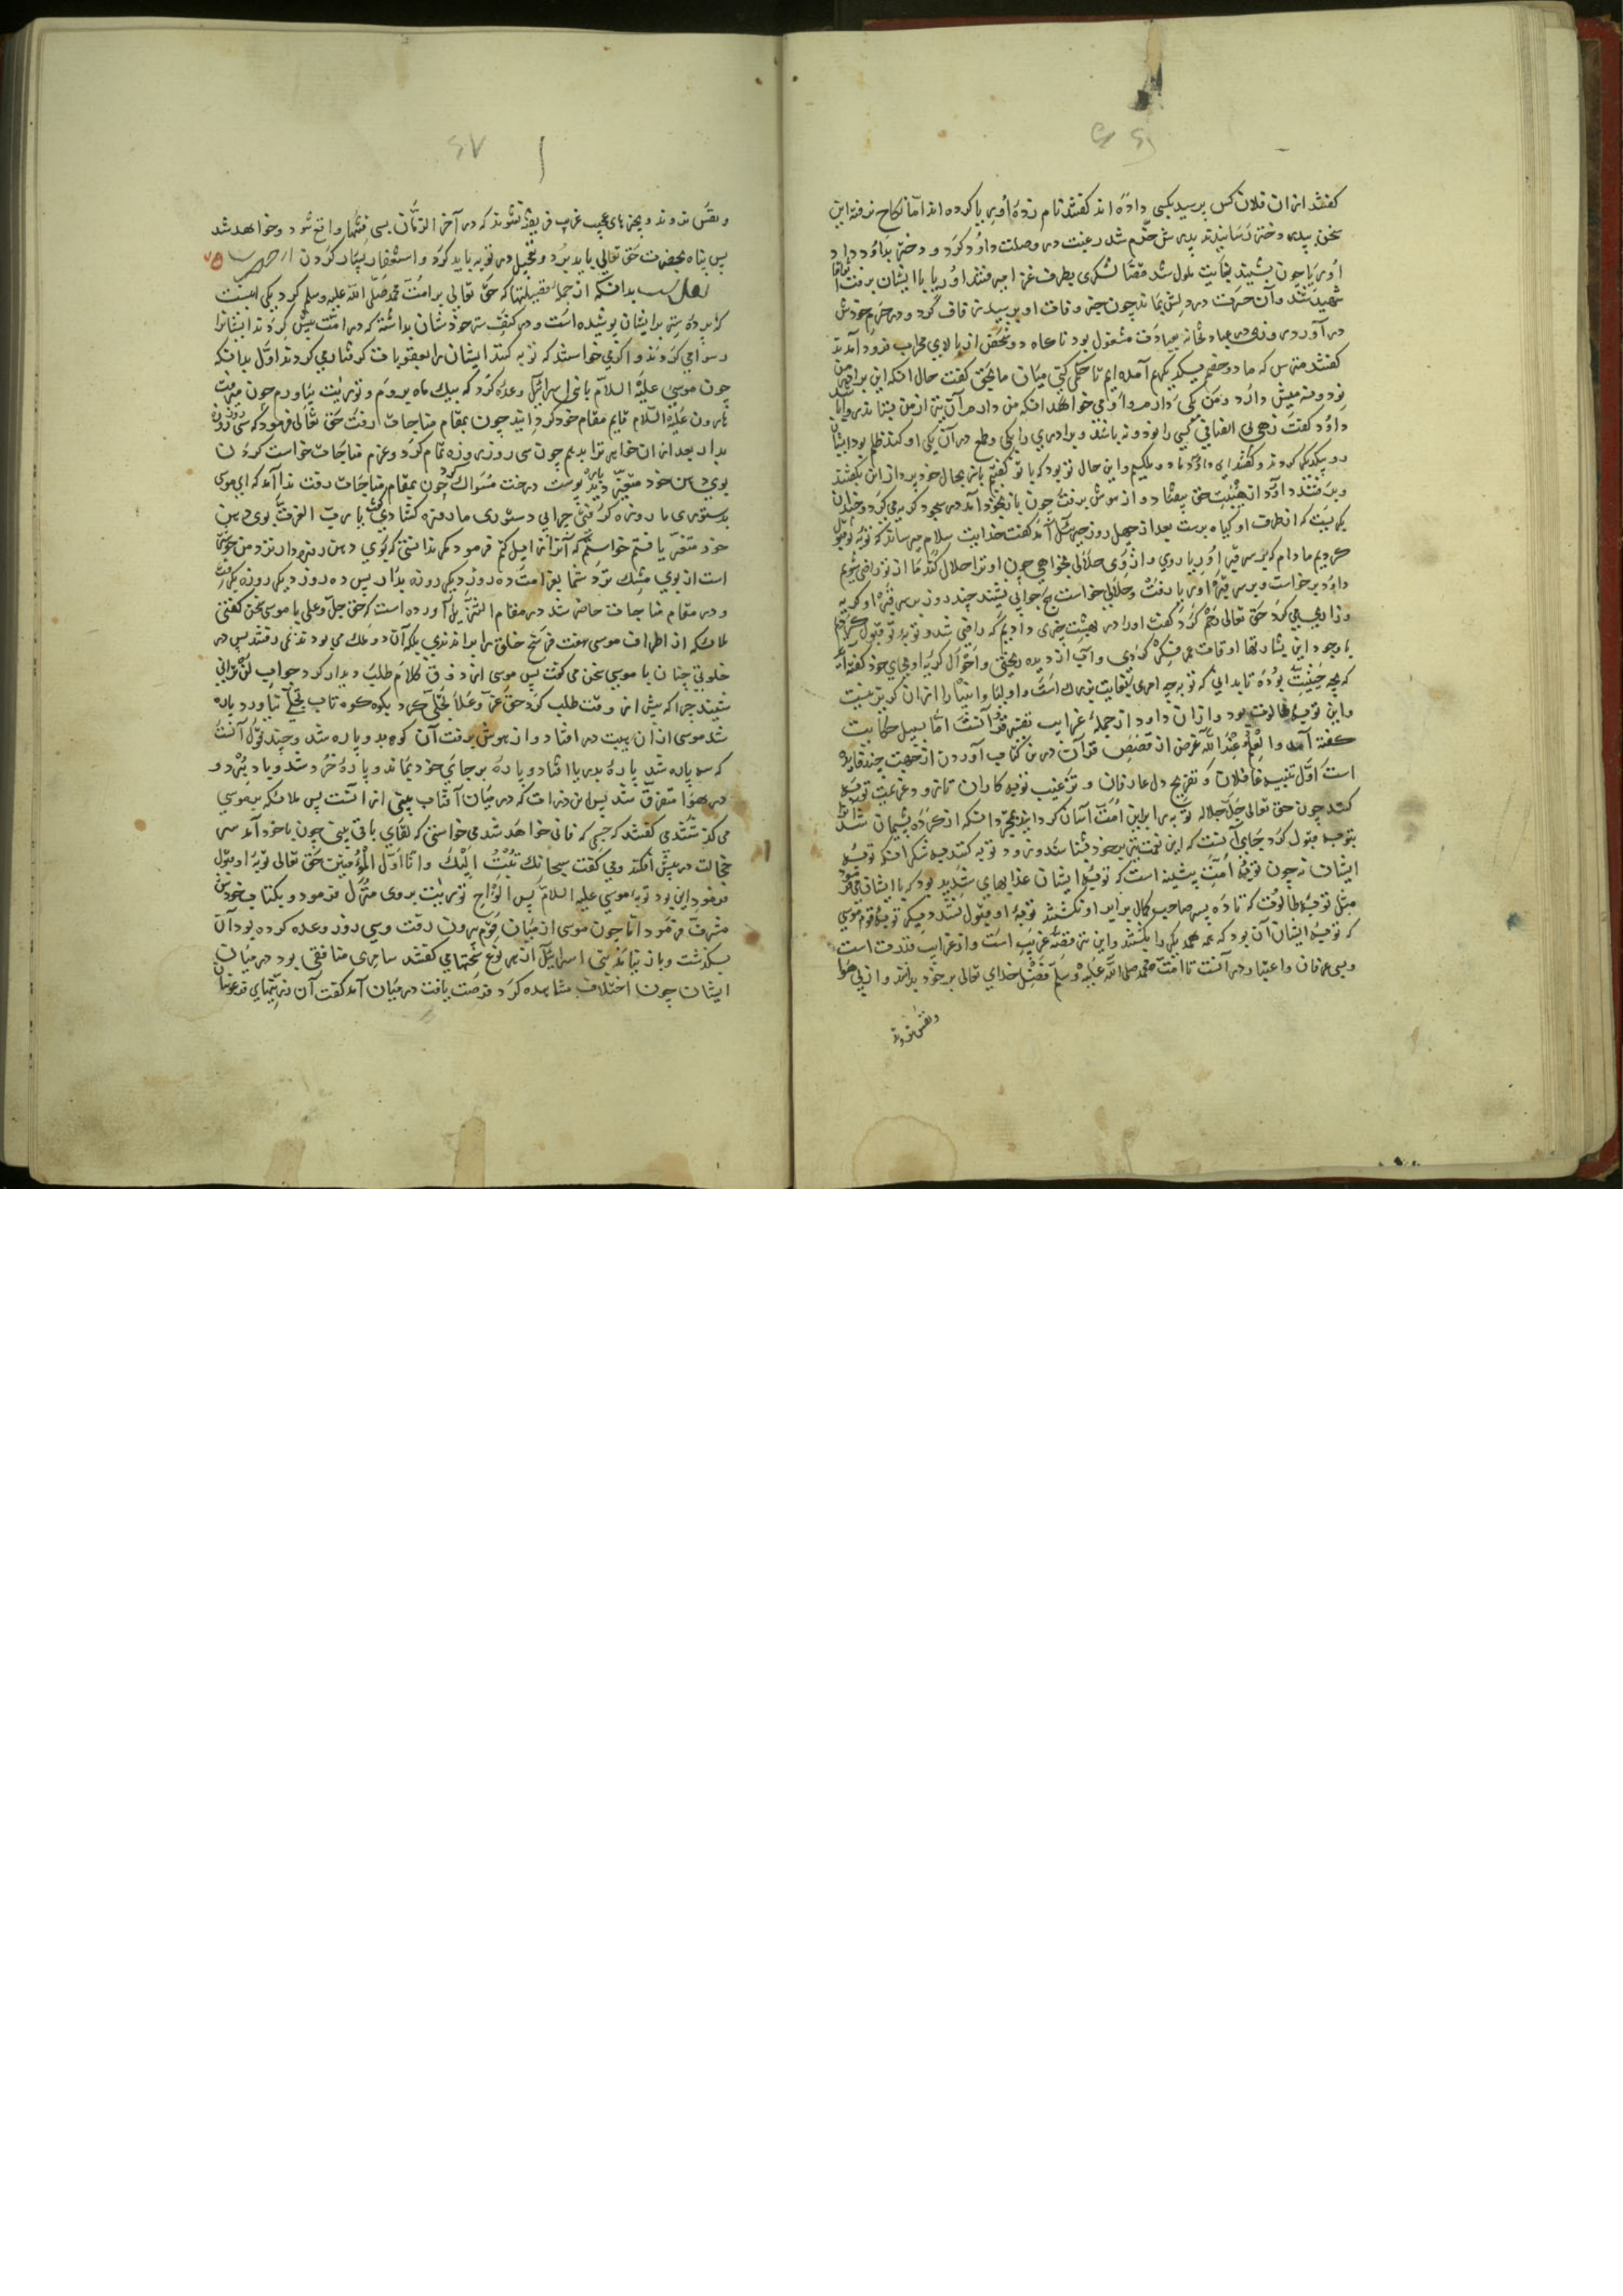 کفتند ازان فلان کس پرسید بکسی داده اند کفتند نام زدهٔ اوریا کرده اند اما نکاح نرفته این
سخن بپدر دختر رسانیدند پدرش خرم شد رغبت در وصلت داود کرد و دختر بداود داد
اوریا چون بشنید بغایت ملول شد قضا لشکری بطرف غزا میرفتند اوریا با ایشان برفت اتفاقا
شهید شد و آن حسرت در دلش بماند چون خبر وفات او برسید زفاف کرد و در حرم خودش
در آورد روزی در عبادتخانه بعبادت مشغول بود ناکاه دو شخص از بالای محراب فرود آمدند
کفتند مترس که ما دو خصم یکدیکریم آمده ایم تا حکم کنی میان ما بحق کفت حال انکه این برادر من
نود و نه میش دارد و من یکی دارم و او می خواهد انکه من دارم آن نیز از من بستاند
داود کفت زهی بی انصافی کسی را نود و نه باشد و برادری را یکی و طمع در آن یکی او کند ظلم بود ایشان
رو بیکدیکر کردند و کفتند ای داود ما دو ملکیم و این حال تو بود که با تو کفتیم باز بحال خود پرداز این بکفتند
و برفتند داود از هیبت حق بیفتاد و از هوش برفت چون باز بخود آمد در سجود کریه می کرد و چندان
بکریست که از طرف او کیاه برست بعد از چهل روز جبرئیل آمد کفت خدایت سلام میرساند که توبه تو قبول
کردیم مادام که بر سر قبر اوریا روی و از وی حلالی بخواهی چون او ترا حلال کند ما از تو راضی شویم
داود برخاست و بر سر قبر اوریا رفت و حلالی خواست جوابی نشنید چند روز بر سر قبر او کریه
و زاری می کرد حق تعالی رحم کرد کفت اورا در بهشت چیزی دادیم که راضی شد و توبه تو قبول کردیم
با وجود این بشارتها اوقات در فکر کردی و آب از دیده ریختی و احوال کریه او بجای خود کفته آید
که بچه حیثیت بوده تا بدانی که توبه چه امری بغایت بزرک است و اولیا و انبیا را ازان کریز نیست
و این توبه طالوت بود و ازان داود از جملهٔ غرایب تفسیر قرآنست اما بسبیل حکایت
کفته آمد والعلم عند الله غرض از قصص قرآن درین کتاب آوردن از جهت چند فایده
است اول تنبیه غافلان و تفریح دل عارفان و ترغیب توبه کاران تا زود رغبت توبه
کنند چون حق تعالی جل جلاله توبه را برین امت آسان کردانید بمجرد انکه از کرده پشیمان شدند
بتوبه قبول کرد جای آنست که این نعمت نیز بر خود بشناسند و زود توبه کنند بشکر انکه توبه
ایشان نه چون توبه امت پیشینه است که توبه ایشان عذابهای شدید بود که با ایشان می فرمود
مثل توبه طالوت که تا ده پسر صاحب کمال برابر او نکشتند توبهٔ او قبول نشد و دیکر توبه قوم موسی
که توبه ایشان آن بود که همه همدیکر را بکشتند و این نیز قصه غریب است و از غرایب قدرت است
و بسی عرفان و اعتبار در آنست تا امت محمد صلی الله علیه وسلم فضل خدای تعالی بر خود بدانند و از پی هوا
و نفس نروند
٤٧
و نفس نروند و بچیزهای عجیب غریب فریفته نشوند که در آخر الزمان بسی فتنها واقع شود و خواهد شد
پس پناه بحضرت حق تعالی باید برد و تعجیل در توبه باید کرد و استغفار بسیار کردن
بدانکه از جمله فضیلتها که حق تعالی بر امت محمد صلی الله علیه وسلم کرد یکی اینست
که پردهٔ ستر بر ایشان پوشیده است و در کنف ستر خودشان بداشته که در امت پیش کردند ایشانرا
رسوا می کردند و اکر می خواستند که توبه کنند ایشان را بعقوبات کرفتار می کردند اول بدانکه
چون موسی علیه السلام با بنی اسرائیل وعده کرد که بیک ماه بروم و توریت بیاورم چون میرفت
هارون علیه السلام قایم مقام خود کردانید چون بمقام مناجات رفت حق تعالی فرمود که سی روز روزه
بدار بعد ازان خدایرا بدیدم چون سی روز روزه تمام کرد و عزم مناجات خواست کردن
بوی دهن خود متغیر دید پوست درخت مسواک کرد چون بمقام مناجات رفت ندا آمد که ای موسی
بدستوری ما روزه کرفتی چرا بی دستوری ما روزه کشادی کفت یا رب العزت بوی دهن
خود متغیر یافتم خواستم که آنرا زایل کنم فرمود مکر ندانستی که بوی دهن روزه دار نزد من خوشتر
است از بوی مشک نزد شما بعزامت ده روز دیکر روزه بدار پس ده روز دیکر روزه بکرفت
و در مقام مناجات حاضر شد در معالم التنزیل آورده است که حق جل و علی با موسی سخن کفتی
ملائکه از اطراف موسی هفت فرسخ خلق را براندندی بلکه آن دو ملک می بودند نمی رفتند پس در
خلوتی چنان با موسی سخن می کفت پس موسی از ذوق کلام طلب دیدار کرد جواب لن ترانی
شنید چرا که پیش از وقت طلب کرد حق عز و علا تجلی کرد بکوه کوه تاب تجلی نیاورد پاره
شد موسی ازان هیبت در افتاد و از هوش برفت آن کوه پاره شد و چند قول آنست
که سه پاره شد پارهٔ بدریا افتاد و پارهٔ بر جای خود بماند و پارهٔ خرد شد و باد ببرد و
در هوا متفرق شد پس این ذرات که در میان آفتاب بینی از انست پس ملائکه بر موسی
می کذشتند می کفتند که جسمی که فانی خواهد شد می خواستی که لقای باقی بینی چون با خود آمد سر
خجالت در پیش افکند و می کفت سبحانک تبت الیک وانا اول المؤمنین حق تعالی توبهٔ او قبول
فرمود این بود توبه موسی علیه السلام پس الواح توریت بروی منزل فرمود و بکتاب خودش
مشرف فرمود اما چون موسی از میان قوم بیرون رفت و سی روز وعده کرده بود آن
بکذشت و باز نیامد بنی اسرائیل از هر نوع سخنهای کفتند سامری منافقی بود در میان
ایشان چون اختلاف مشاهده کرد فرصت یافت در میان آمد کفت آن